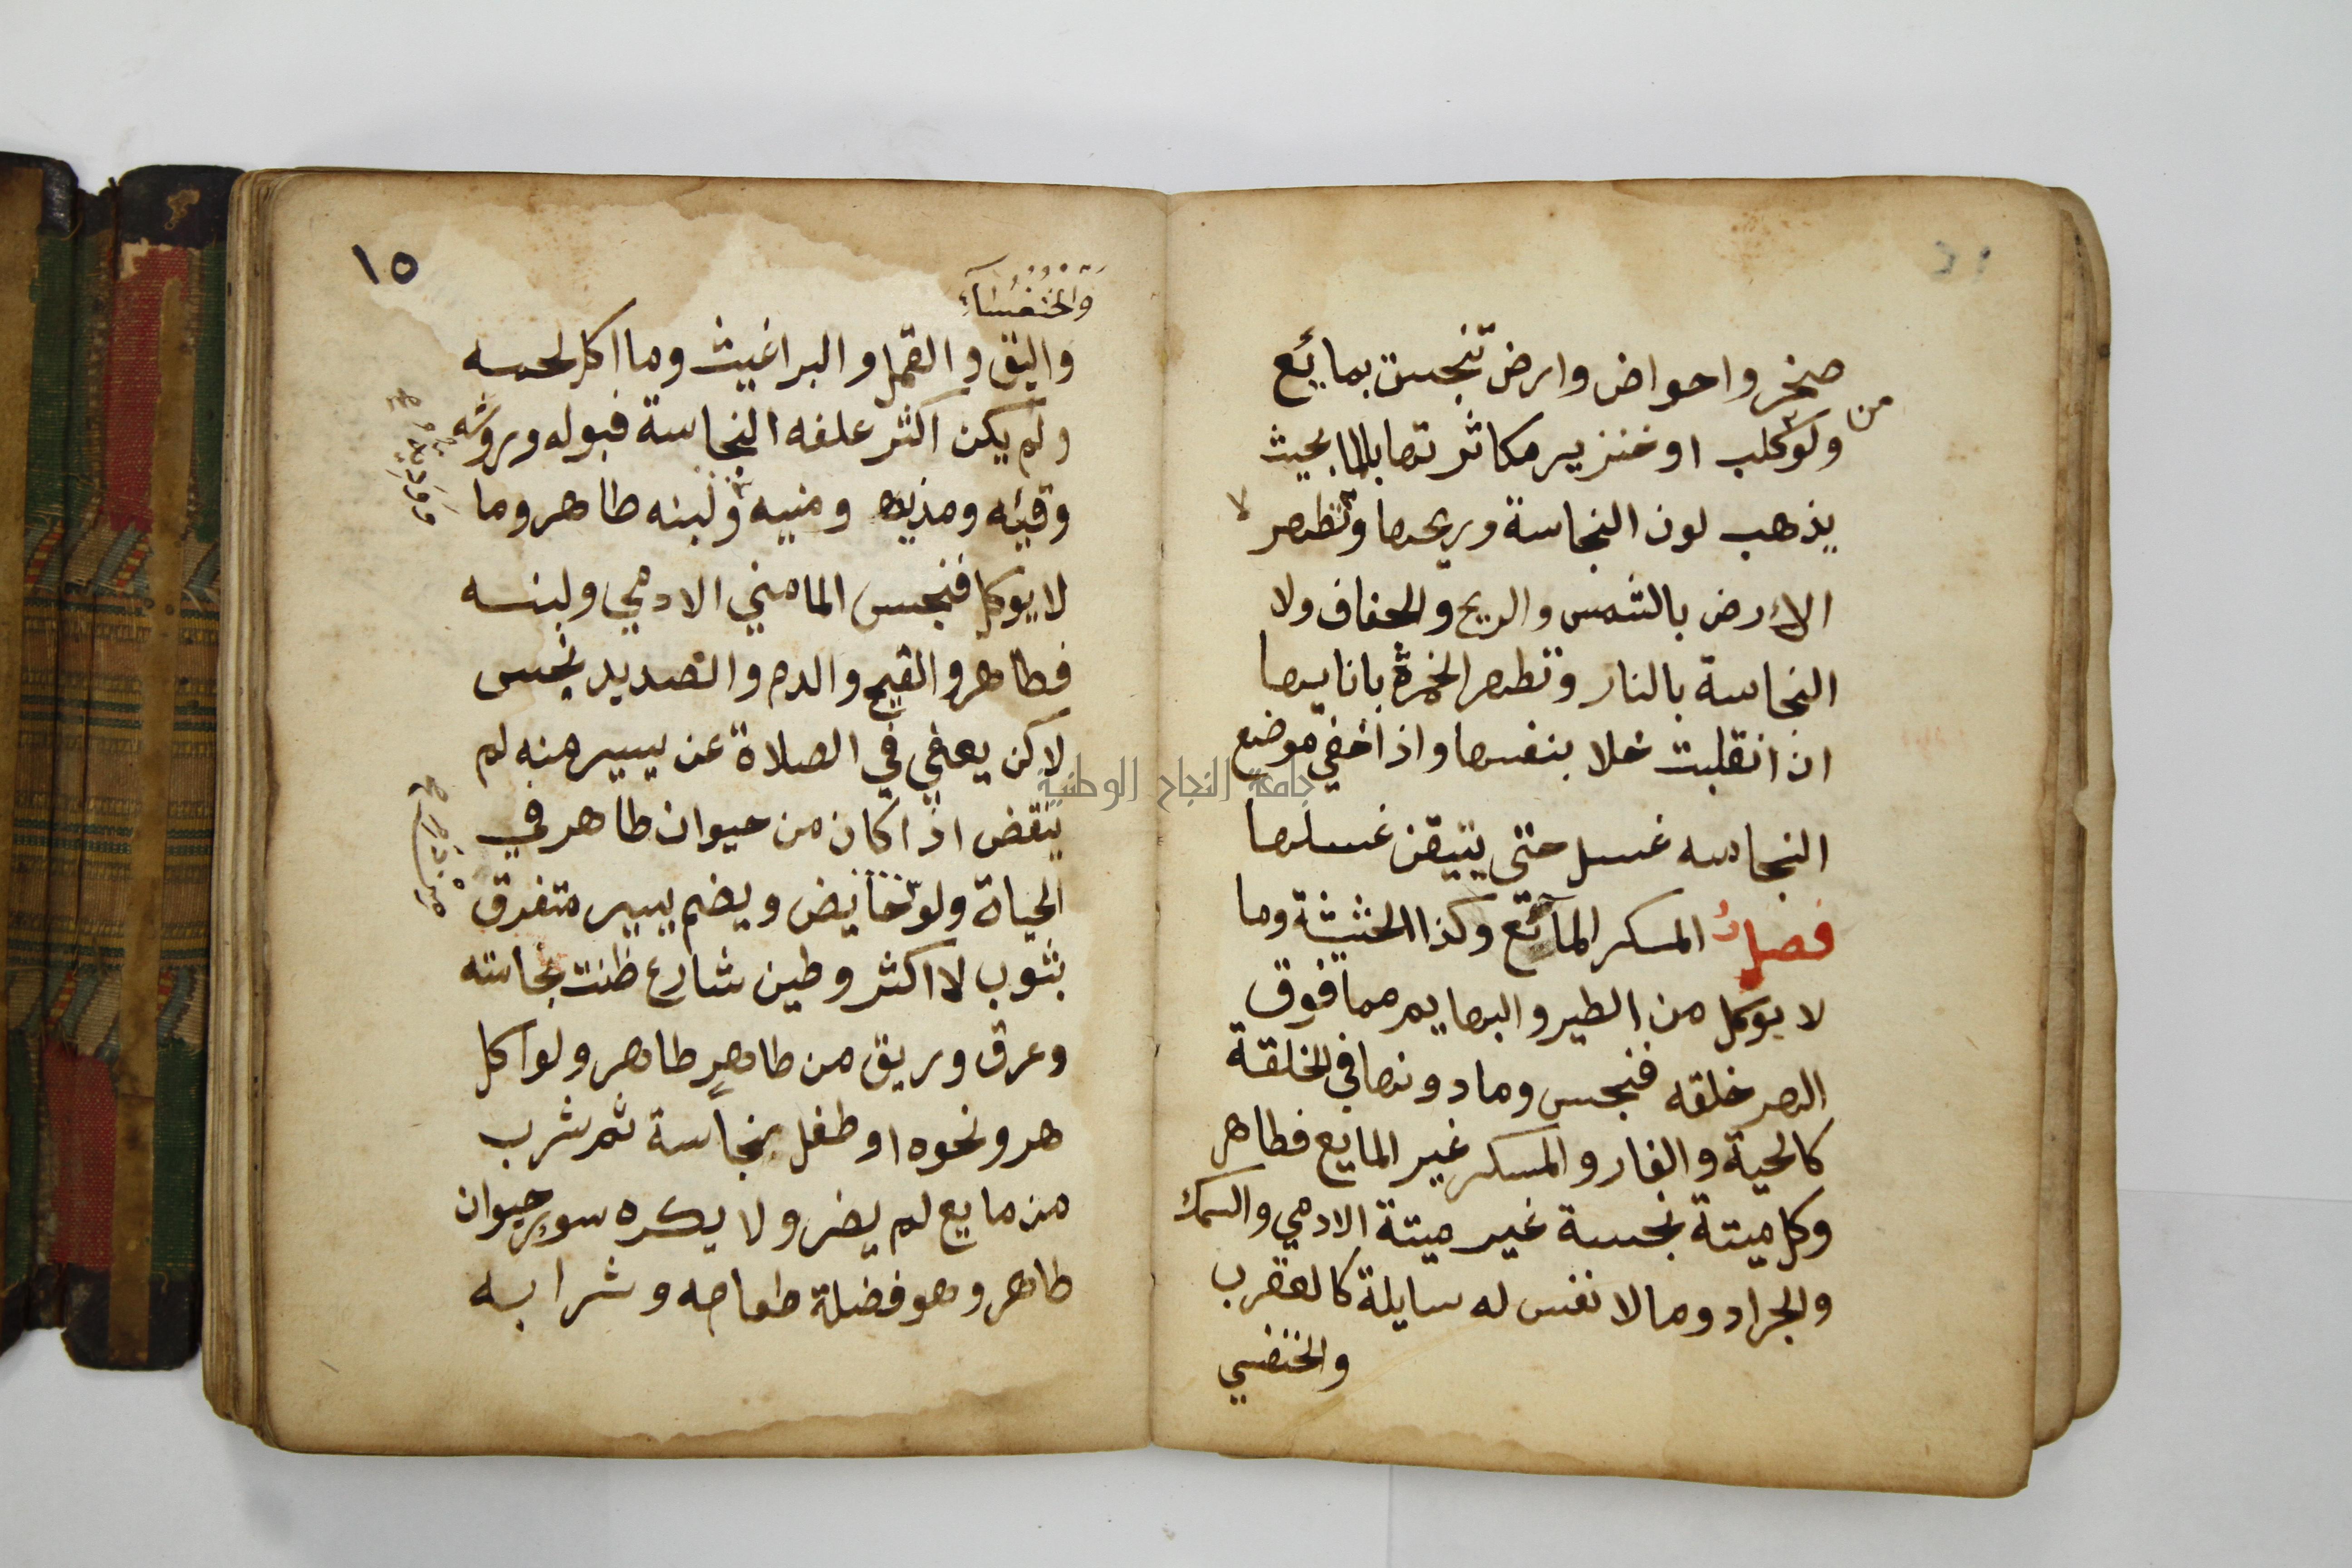 صخر واحواض وارض تنجست بمائع
من
ولو كلب او خنزير مكاثرتها بالما بحيث
يذهب لون النجاسة وريحها وتطهر
لا
الارض بالشمس والريح والجفاف ولا
النجاسة بالنار وتطهر الخمرة بانايها
ان انقلبت خلا بنفسها واذا خفي موضع
النجاسه غسل حتى يتيقن غسلها
فصل المسكر المآئع وكذا الحشيشة وما
لا يوكل من الطير والبهايم مما فوق
الهر خلقه فنجس وما دونها في الخلقة
كالحية والفار والمسكر غير المايع فطاهر
وكل ميتة نجسة غير ميتة الادمي والسمك
والجراد وما لا نفس له سايلة كالعقرب
والخنفسي
١٥
وَالخُنْفُسَآءِ
والبق والقمل والبراغيث وما اكل لحمه
ولم يكن اكثر علفه النجاسة فبوله وروثه
وقيئه ومذيه ومنيه ولبنه طاهر وما
لا يوكل فنجس الا مني الادمي ولبنه
فطاهر والقيح والدم والصديد نجس
لاكن يعفي في الصلاة عن يسير منه لم
ينقض اذا كان من حيوان طاهر في
الحياة ولو حايض ويضم يسير متفرق
بثوب لا اكثر وطين شارع ظنت نجاسته
وعرق وريق من طاهرٍ طاهر ولو اكل
هر ونحوه او طفل نجاسة ثم شرب
من مايع لم يضر ولا يكره سور حيوان
طاهر وهو فضلة طعامه وشرابه
جامعة النجاح الوطنية